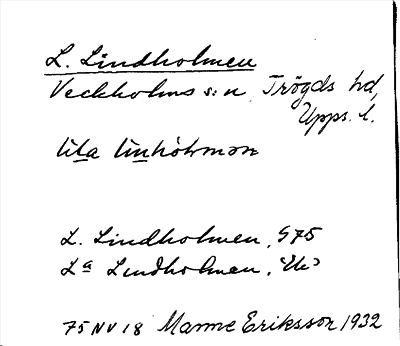 L. Lindholmen
Veckholms s:n, Trögds hd,
Upps. l.
lila linhòlmən
L. Lindholmen, G75
Lª Lindholmen,
75 NV 18 Manne Eriksson 1932